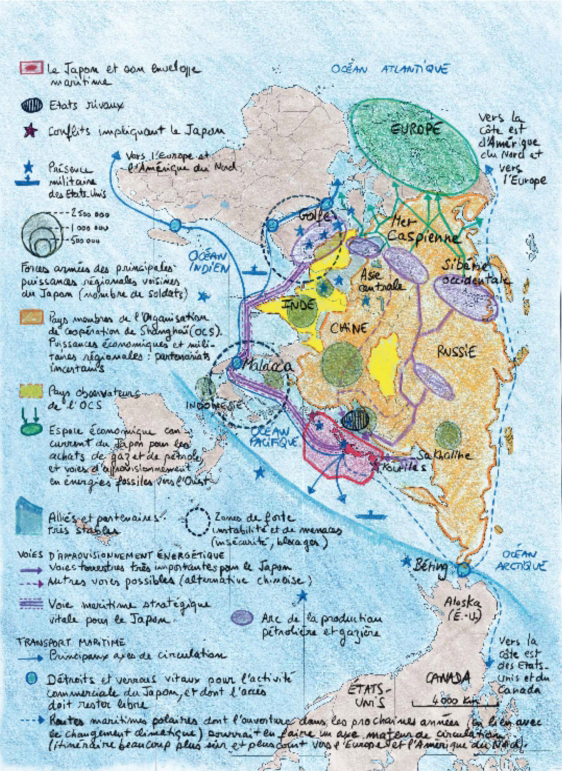 OCÉAN ATLANTIQUE
Le Japon et son enveloppe
maritime
Etats rivaux
Conflits impliquant le Japon
Présence
militaire
des Etats-Unis
2 500 000
1 000 000
500 000
Forces armées des principales
puissances régionales voisines
du Japon (nombre de soldats)
Pays membres de l'Organisation
de coopération de Shanghaï (OCS).
Puissances économiques et mili-
taires régionales : partenariats
incertains
Pays observateurs
de l'OCS
Espace économique con-
current du Japon pour les
achats de gaz et de pétrole
et voies d'approvisionnement
en énergies fossiles vers l'Ouest
Alliés et partenaires
très stables
Zones de forte
instabilité et de menaces
(insécurité, blocages)
VOIES D'APPROVISIONNEMENT ÉNERGÉTIQUE
Voies terrestres très importantes pour le Japon
Autres voies possibles (alternative chinoise)
Voie maritime stratégique
vitale pour le Japon
Arc de la production
pétrolière et gazière
TRANSPORT MARITIME
Principaux axes de circulation
Détroits et verrous vitaux pour l'activité
commerciale du Japon, et dont l'accès
doit rester libre
Routes maritimes polaires dont l'ouverture dans les prochaines années (en lien avec
le changement climatique) pourrait en faire un axe majeur de circulation
(itinéraire beaucoup plus sûr et plus court vers l'Europe et l'Amérique du Nord).
Vers l'Europe et
l'Amérique du Nord
EUROPE
vers la
côte est
d'Amérique
du Nord et
vers
l'Europe
Golfe
Mer
Caspienne
OCÉAN
INDIEN
Asie
centrale
Sibérie
occidentale
INDE
CHINE
RUSSIE
Malacca
INDONESIE
OCÉAN
PACIFIQUE
Sakhaline
Kouriles
Béring
OCÉAN
ARCTIQUE
Alaska
(É.-U.)
Vers la
côte est
des Etats-
Unis et du
Canada
CANADA
ÉTATS-
UNIS
4 000 Km